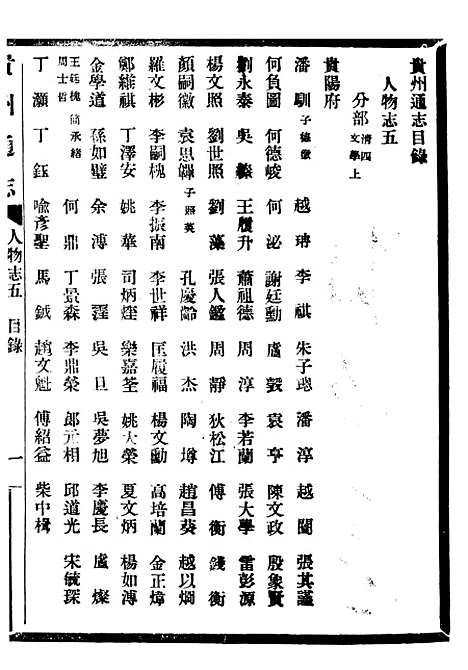 貴州通志目錄
人物志五
分部 清四 文學上
貴陽府
潘馴 子德徵 越琦 李祺 朱子璁 潘淳 越闓 張其謹
何負圖 何德峻 何泌 謝廷勳 盧瑴 袁亨 陳文政 殷象賢
劉永泰 吳 王履升 蕭祖德 周淳 李若蘭 張大學 雷彭源
楊文照 劉世照 劉藻 張人鑑 周靜 狄松江 傅衡 錢衡
顏嗣徽 袁思韠 子照英 孔慶齡 洪杰 陶增 趙昌葵 越以燗
羅文彬 李嗣槐 李振南 李世祥 匡履福 楊文勳 高培蘭 金正煒
鄭維祺 丁澤安 姚華 司炳煃 樂嘉荃 姚大榮 夏文炳 楊如溥
金學道 孫如璧 余溥 張霔 吳旦 吳夢旭 李慶長 盧燦
王廷槐 簡承緒 周士哲 何鼎 丁景森 李鼎榮 郎元相 邱道光 宋毓琛
丁灝 丁鈺 喩彥聖 馬鉞 趙文魁 傅紹益 柴中楫
貴州通志
人物志五 目錄
一